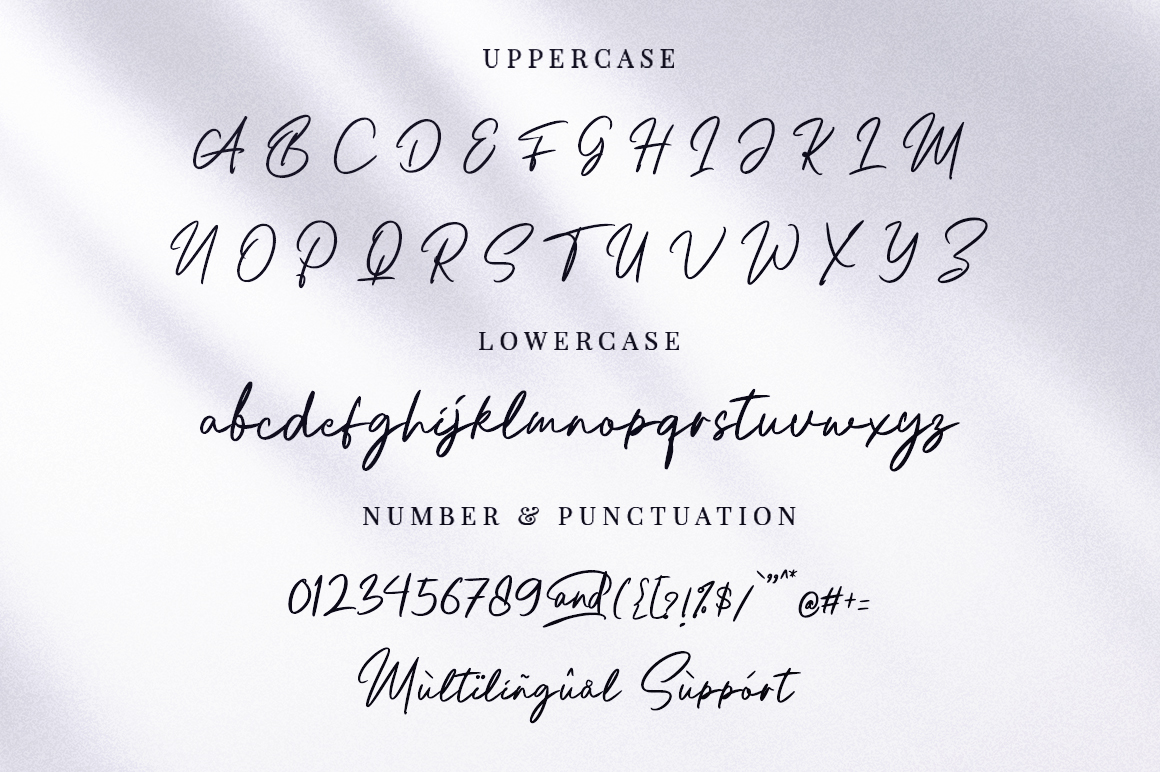 UPPERCASE
A B C D E F G H I J K L M
N O P Q R S T U V W X Y Z
LOWERCASE
abcdefghijklmnopqrstuvwxyz
NUMBER & PUNCTUATION
0123456789and({[?!%$/`"^*@#+=
Mùltïlíñgûål Sùppórt